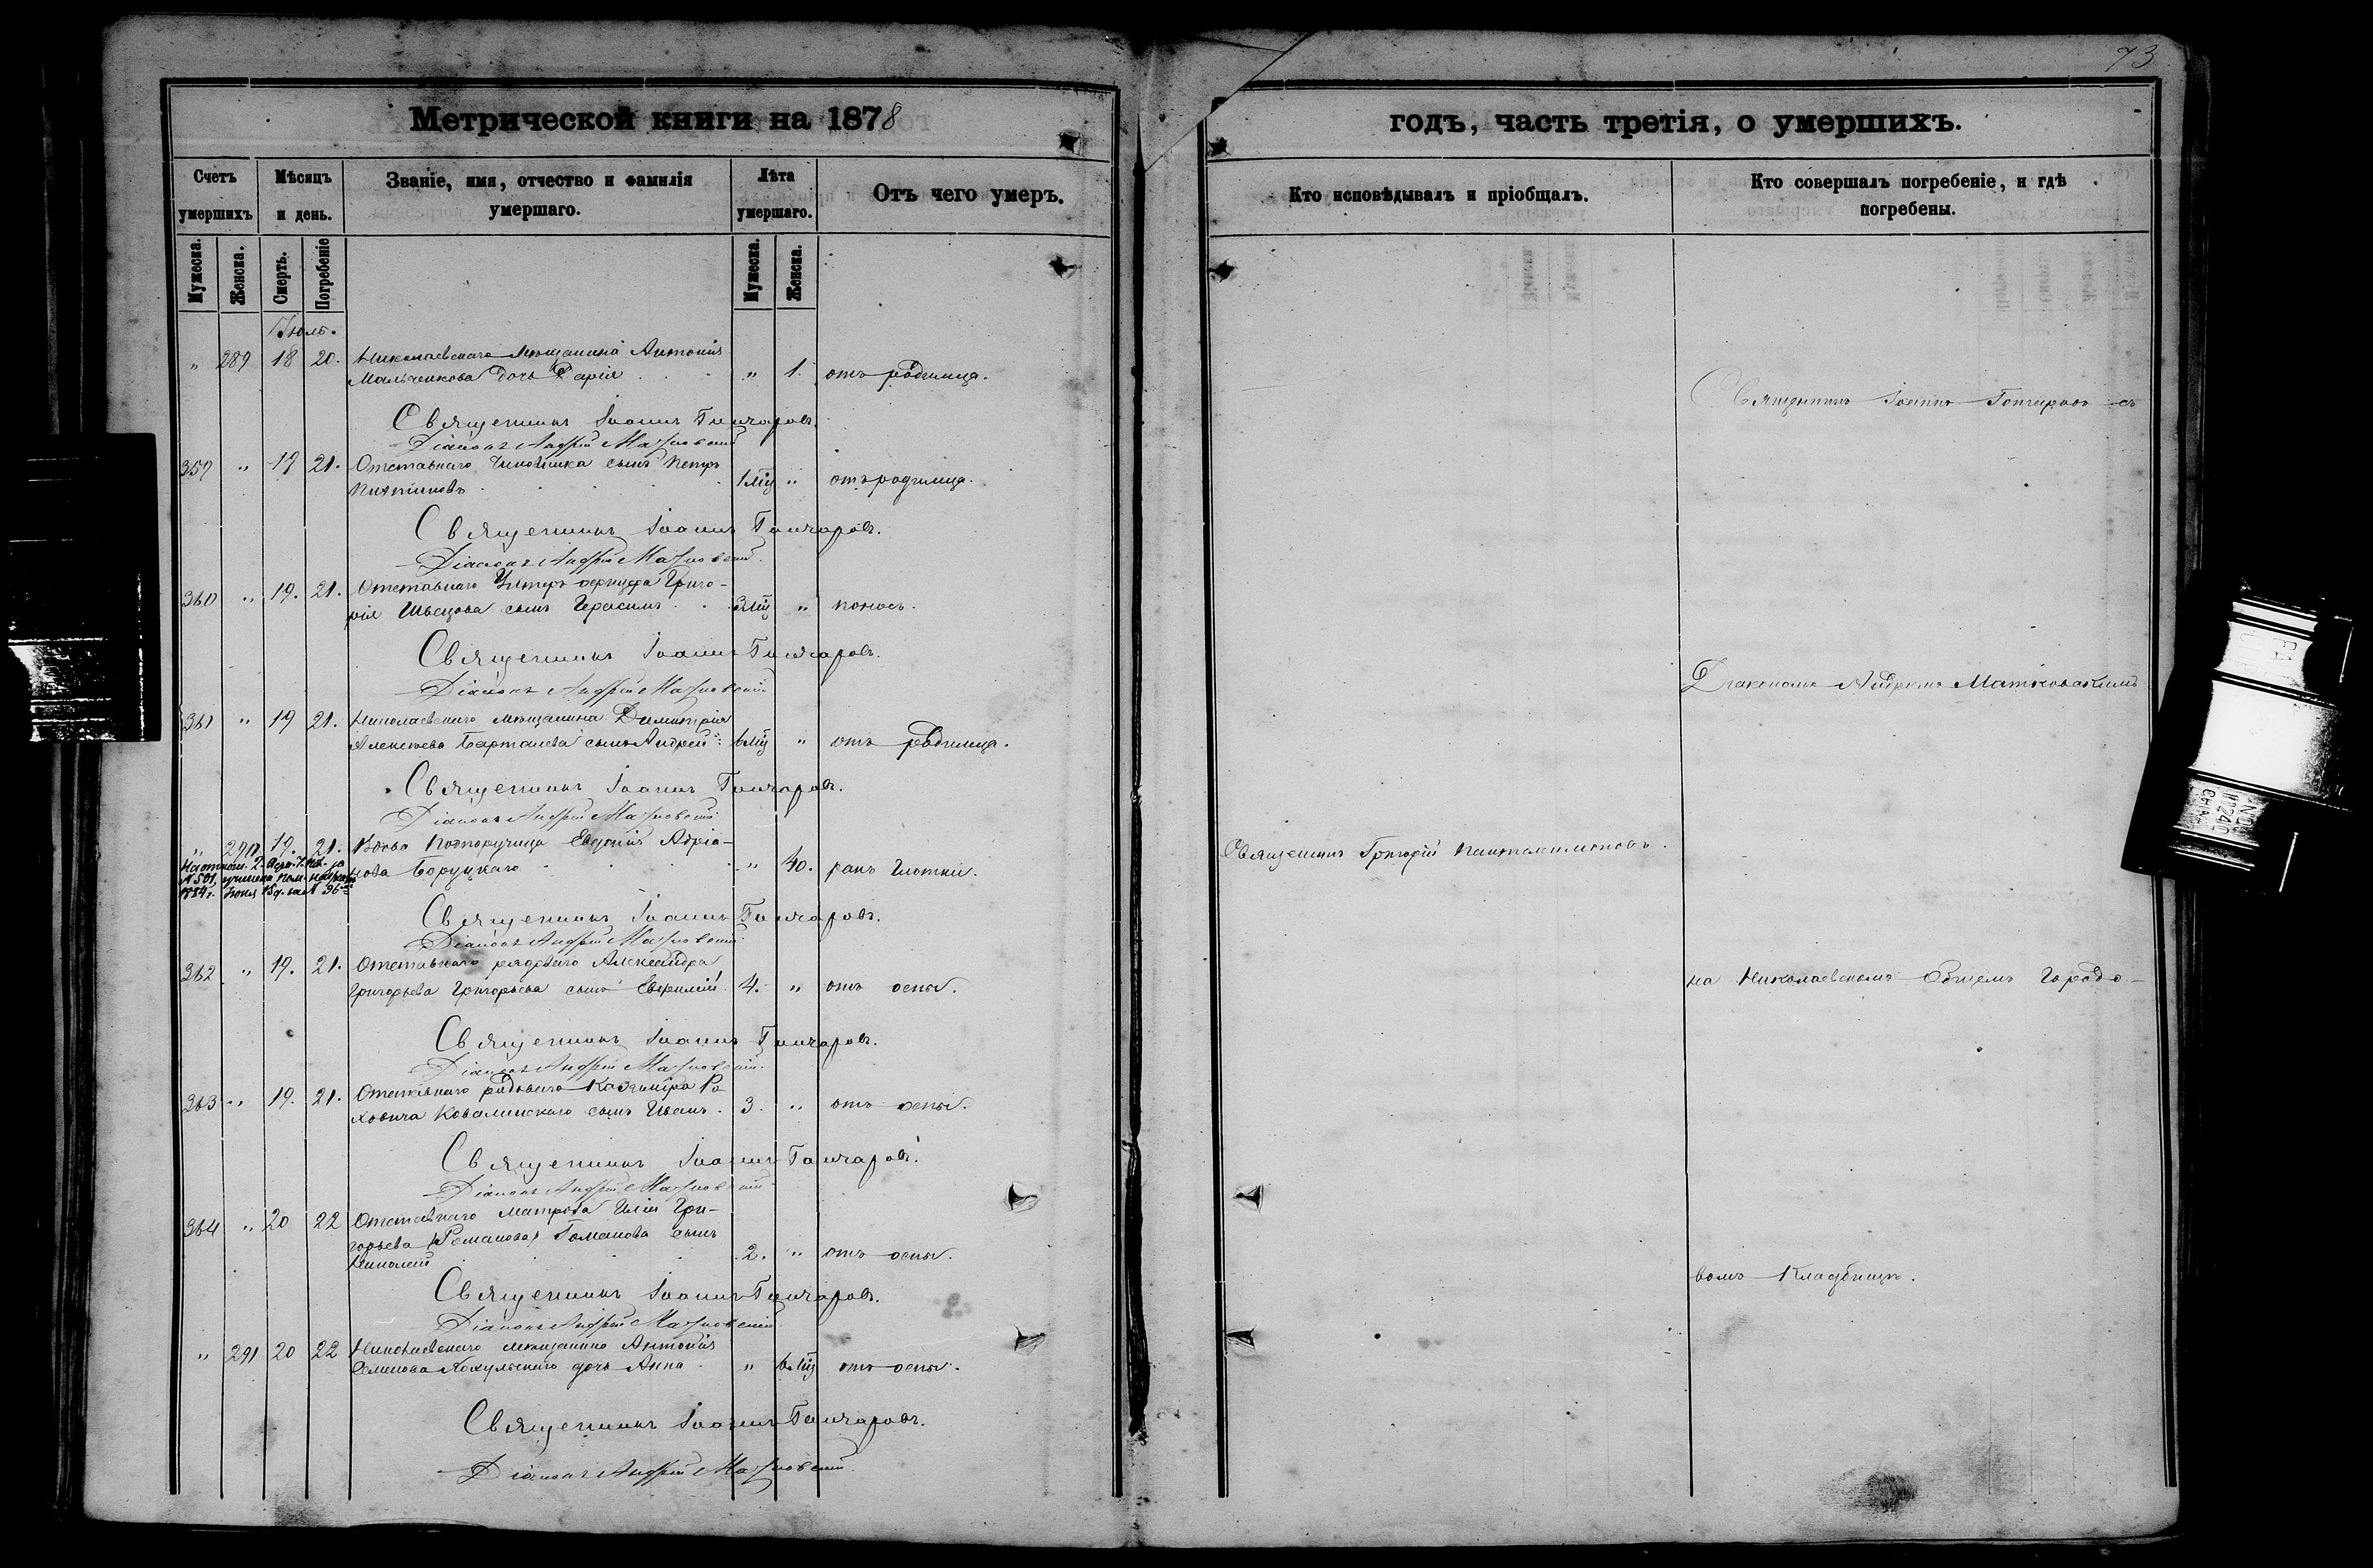 73
Метрической книги на 1878
годъ, часть третія, о умершихъ.
Счетъ умершихъ
Мѣсяцъ и день.
Званіе, имя, отчество и фамилія умершаго.
Лѣта умершаго.
Отъ чего умеръ.
Кто исповѣдывалъ и пріобщалъ.
Кто совершалъ погребеніе, и гдѣ погребены.
Мужеска. Женска. Смерть. Погребеніе Мужеска. Женска.
Іюль.
" 289 18 20. Николаевскаго мѣщанина Антонія
Мальченкова дочь Дарія " 1. отъ родимца.
Священникъ Іоаннъ Гончаровъ.
Діаконъ Андрей Матковскій
359 " 19 21. Отставнаго Чиновника сынъ Петръ
1 мѣц " отъ родимца.
Священникъ Іоаннъ Гончаровъ.
Діаконъ Андрей Матковскій
360 " 19. 21. Отставнаго Унтеръ офицера Григо-
рія Швецова сынъ Герасимъ 3 мѣц " поносъ.
Священникъ Іоаннъ Гончаровъ.
Діаконъ Андрей Матковскій
361 " 19 21. Николаевскаго мѣщанина Димитрія
Алексѣева сынъ Андрей 6 мѣц " отъ родимца.
Священникъ Іоаннъ Гончаровъ.
Діаконъ Андрей Матковскій
" 290 19. 21. Вдова Подпоручица Евдокія Адріа-
нова Боруцкаго " 40. ракъ глотки.
Священникъ Іоаннъ Гончаровъ.
Діаконъ Андрей Матковскій
362 " 19. 21. Отставнаго рядоваго Александра
Григорьева Григорьева сынъ Евфимій 4. " отъ оспы.
Священникъ Іоаннъ Гончаровъ.
Діаконъ Андрей Матковскій
363 " 19. 21. Отставнаго рядоваго Казиміра
Ковалинскаго сынъ Иванъ 3. " отъ оспы.
Священникъ Іоаннъ Гончаровъ.
Діаконъ Андрей Матковскій
364 " 20 22 Отставнаго матроса Иліи Гри-
горьева (Романова) Гоманова сынъ
Николай 2. " отъ оспы.
Священникъ Іоаннъ Гончаровъ.
Діаконъ Андрей Матковскій
" 291 20 22 Николаевскаго мѣщанина Антонія
Семенова дочь Анна " 6 мѣц отъ оспы.
Священникъ Іоаннъ Гончаровъ.
Діаконъ Андрей Матковскій
Священникъ Григорій Пантелимоновъ.
Священникъ Іоаннъ Гончаровъ съ
Діакономъ Андреемъ Матковскимъ
на Николаевскомъ Общемъ Городо-
вомъ Кладбищѣ.